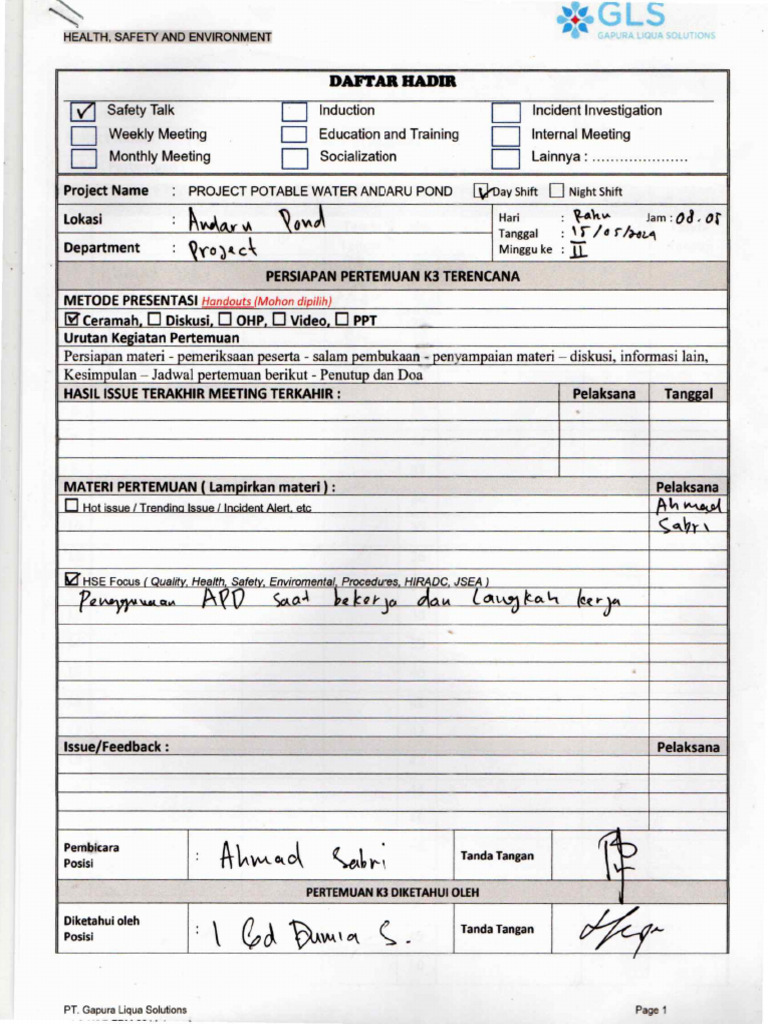 HEALTH, SAFETY AND ENVIRONMENT
GLS
GAPURA LIQUA SOLUTIONS
DAFTAR HADIR
Safety Talk Induction Incident Investigation
Weekly Meeting Education and Training Internal Meeting
Monthly Meeting Socialization Lainnya : ......................
Project Name : PROJECT POTABLE WATER ANDARU POND Day Shift Night Shift
Lokasi : Andaru Pond
Hari : Rabu Jam : 08.05
Tanggal : 15/05/2024
Department : Project
Minggu ke : II
PERSIAPAN PERTEMUAN K3 TERENCANA
METODE PRESENTASI Handouts (Mohon dipilih)
Ceramah, Diskusi, OHP, Video, PPT
Urutan Kegiatan Pertemuan
Persiapan materi - pemeriksaan peserta - salam pembukaan - penyampaian materi – diskusi, informasi lain,
Kesimpulan – Jadwal pertemuan berikut - Penutup dan Doa
HASIL ISSUE TERAKHIR MEETING TERKAHIR : Pelaksana Tanggal
MATERI PERTEMUAN ( Lampirkan materi ) : Pelaksana
Hot issue / Trending Issue / Incident Alert, etc Ahmad
Sabri
HSE Focus ( Quality, Health, Safety, Enviromental, Procedures, HIRADC, JSEA )
Penggunaan APD saat bekerja dan langkah kerja
Issue/Feedback : Pelaksana
Pembicara
Posisi : Ahmad Sabri Tanda Tangan
PERTEMUAN K3 DIKETAHUI OLEH
Diketahui oleh
Posisi : I Gd Dumia S. Tanda Tangan
PT. Gapura Liqua Solutions Page 1